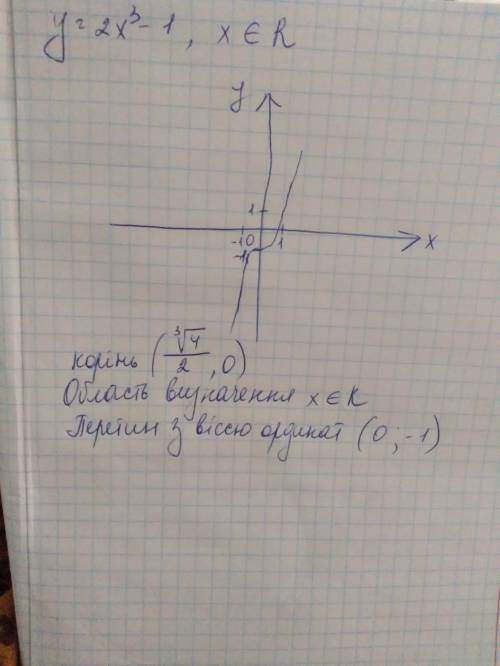 y = 2x³ - 1, x ∈ R
y
1
-1 0 1 x
-1
корінь (∛4/2, 0)
Область визначення x ∈ R
Перетин з віссю ординат (0; -1)